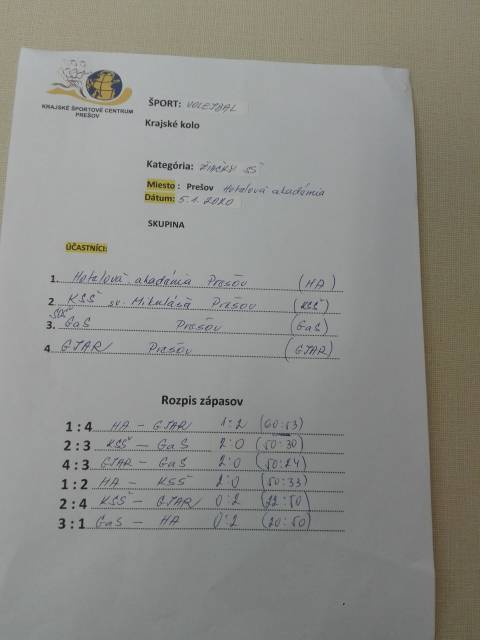 KRAJSKÉ ŠPORTOVÉ CENTRUM
PREŠOV
ŠPORT: VOLEJBAL
Krajské kolo
Kategória: ŽIAČKY SŠ
Miesto : Prešov Hotelová akadémia
Dátum: 5.1.2020
SKUPINA
ÚČASTNÍCI:
1. Hotelová akadémia Prešov (HA)
2. KSŠ sv. Mikuláša Prešov (KSŠ)
3. SOŠ GaS Prešov (GaS)
4 GJAR Prešov (GJAR)
Rozpis zápasov
1 : 4 HA - GJAR 1:2 (60:53)
2 : 3 KSŠ - GaS 2:0 (50:30)
4 : 3 GJAR - GaS 2:0 (50:24)
1 : 2 HA - KSŠ 2:0 (50:33)
2 : 4 KSŠ - GJAR 0:2 (22:50)
3 : 1 GaS - HA 0:2 (20:50)